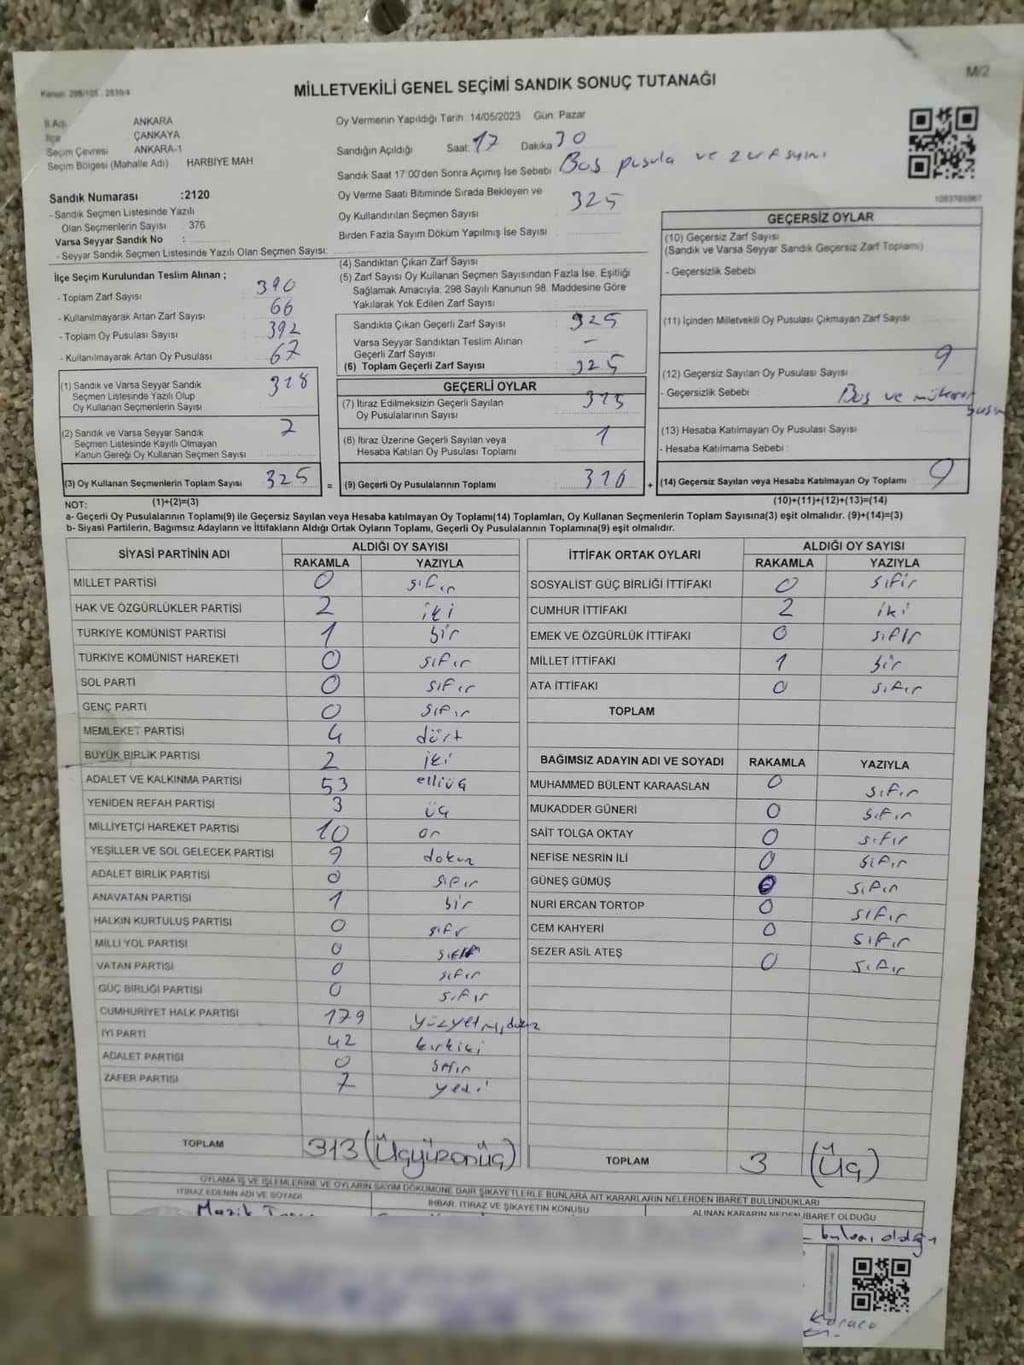 M/2
MİLLETVEKİLİ GENEL SEÇİMİ SANDIK SONUÇ TUTANAĞI
İl Adı ANKARA
İlçe ÇANKAYA
Seçim Çevresi ANKARA-1
Seçim Bölgesi (Mahalle Adı) HARBİYE MAH
Oy Vermenin Yapıldığı Tarih 14/05/2023 Gün: Pazar
Sandığın Açıldığı Saat: 17 Dakika 30
Sandık Saat 17:00'den Sonra Açılmış İse Sebebi: Boş pusula ve zarf sayımı
Sandık Numarası :2120
- Sandık Seçmen Listesinde Yazılı
Olan Seçmenlerin Sayısı : 376
Varsa Seyyar Sandık No :
- Seyyar Sandık Seçmen Listesinde Yazılı Olan Seçmen Sayısı:
Oy Verme Saati Bitiminde Sırada Bekleyen ve
Oy Kullandırılan Seçmen Sayısı 325
Birden Fazla Sayım Döküm Yapılmış İse Sayısı
İlçe Seçim Kurulundan Teslim Alınan ;
- Toplam Zarf Sayısı 390
- Kullanılmayarak Artan Zarf Sayısı 66
- Toplam Oy Pusulası Sayısı 392
- Kullanılmayarak Artan Oy Pusulası 67
(1) Sandık ve Varsa Seyyar Sandık
Seçmen Listesinde Yazılı Olup
Oy Kullanan Seçmenlerin Sayısı
(2) Sandık ve Varsa Seyyar Sandık
Seçmen Listesinde Kayıtlı Olmayan
Kanun Gereği Oy Kullanan Seçmen Sayısı 2
(3) Oy Kullanan Seçmenlerin Toplam Sayısı 325 =
(4) Sandıktan Çıkan Zarf Sayısı
(5) Zarf Sayısı Oy Kullanan Seçmen Sayısından Fazla İse, Eşitliği
Sağlamak Amacıyla, 298 Sayılı Kanunun 98. Maddesine Göre
Yakılarak Yok Edilen Zarf Sayısı
Sandıkta Çıkan Geçerli Zarf Sayısı 325
Varsa Seyyar Sandıktan Teslim Alınan
Geçerli Zarf Sayısı -
(6) Toplam Geçerli Zarf Sayısı 325
GEÇERLİ OYLAR
(7) İtiraz Edilmeksizin Geçerli Sayılan
Oy Pusulalarının Sayısı 315
(8) İtiraz Üzerine Geçerli Sayılan veya
Hesaba Katılan Oy Pusulası Toplamı 1
(9) Geçerli Oy Pusulalarının Toplamı 316 +
GEÇERSİZ OYLAR
(10) Geçersiz Zarf Sayısı
(Sandık ve Varsa Seyyar Sandık Geçersiz Zarf Toplamı)
- Geçersizlik Sebebi
(11) İçinden Milletvekili Oy Pusulası Çıkmayan Zarf Sayısı
(12) Geçersiz Sayılan Oy Pusulası Sayısı 9
- Geçersizlik Sebebi Boş ve
(13) Hesaba Katılmayan Oy Pusulası Sayısı
- Hesaba Katılmama Sebebi
(14) Geçersiz Sayılan veya Hesaba Katılmayan Oy Toplamı 9
NOT: (1)+(2)=(3) (10)+(11)+(12)+(13)=(14)
a- Geçerli Oy Pusulalarının Toplamı(9) ile Geçersiz Sayılan veya Hesaba katılmayan Oy Toplamı(14) Toplamları, Oy Kullanan Seçmenlerin Toplam Sayısına(3) eşit olmalıdır. (9)+(14)=(3)
b- Siyasi Partilerin, Bağımsız Adayların ve İttifakların Aldığı Ortak Oyların Toplamı, Geçerli Oy Pusulalarının Toplamına(9) eşit olmalıdır.
SİYASİ PARTİNİN ADI ALDIĞI OY SAYISI
RAKAMLA YAZIYLA
MİLLET PARTİSİ 0 sıfır
HAK VE ÖZGÜRLÜKLER PARTİSİ 2 iki
TÜRKİYE KOMÜNİST PARTİSİ 1 bir
TÜRKİYE KOMÜNİST HAREKETİ 0 sıfır
SOL PARTİ 0 sıfır
GENÇ PARTİ 0 sıfır
MEMLEKET PARTİSİ 4 dört
BÜYÜK BİRLİK PARTİSİ 2 iki
ADALET VE KALKINMA PARTİSİ 53 elliüç
YENİDEN REFAH PARTİSİ 3 üç
MİLLİYETÇİ HAREKET PARTİSİ 10 on
YEŞİLLER VE SOL GELECEK PARTİSİ 9 dokuz
ADALET BİRLİK PARTİSİ 0 sıfır
ANAVATAN PARTİSİ 1 bir
HALKIN KURTULUŞ PARTİSİ 0 sıfır
MİLLİ YOL PARTİSİ 0 sıfır
VATAN PARTİSİ 0 sıfır
GÜÇ BİRLİĞİ PARTİSİ 0 sıfır
CUMHURİYET HALK PARTİSİ 179 yüzyetmişdokuz
İYİ PARTİ 42 kırkiki
ADALET PARTİSİ 0 sıfır
ZAFER PARTİSİ 7 yedi
TOPLAM 313 (Üçyüzonüç)
İTTİFAK ORTAK OYLARI ALDIĞI OY SAYISI
RAKAMLA YAZIYLA
SOSYALİST GÜÇ BİRLİĞİ İTTİFAKI 0 sıfır
CUMHUR İTTİFAKI 2 iki
EMEK VE ÖZGÜRLÜK İTTİFAKI 0 sıfır
MİLLET İTTİFAKI 1 bir
ATA İTTİFAKI 0 sıfır
TOPLAM
BAĞIMSIZ ADAYIN ADI VE SOYADI RAKAMLA YAZIYLA
MUHAMMED BÜLENT KARAASLAN 0 sıfır
MUKADDER GÜNERİ 0 sıfır
SAİT TOLGA OKTAY 0 sıfır
NEFİSE NESRİN İLİ 0 sıfır
GÜNEŞ GÜMÜŞ 0 sıfır
NURİ ERCAN TORTOP 0 sıfır
CEM KAHYERİ 0 sıfır
SEZER ASİL ATEŞ 0 sıfır
TOPLAM 3 (Üç)
OYLAMA İŞ VE İŞLEMLERİNE VE OYLARIN SAYIM DÖKÜMÜNE DAİR ŞİKAYETLERLE BUNLARA AİT KARARLARIN NELERDEN İBARET BULUNDUKLARI
İTİRAZ EDENİN ADI VE SOYADI İHBAR, İTİRAZ VE ŞİKAYETİN KONUSU ALINAN KARARIN NEDEN İBARET OLDUĞU